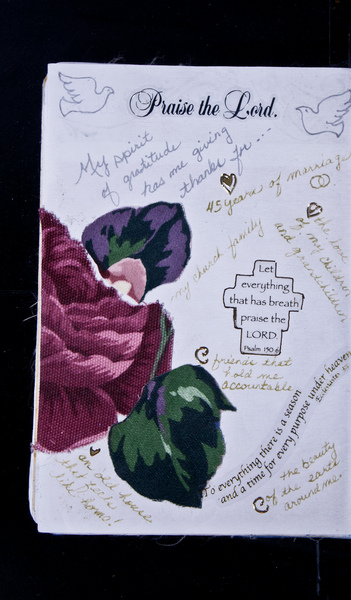 Praise the Lord.
My spirit
of gratitude
has me giving
thanks for ...
45 years of marriage
the love
of my children
and grandchildren
my church family
Let
everything
that has breath
praise the
LORD.
Psalm 150:6
friends that
hold me
accountable
To everything there is a season
and a time for every purpose under heaven
Ecclesiastes
an old house
that feels
like home!
of the beauty
of the earth
around me.